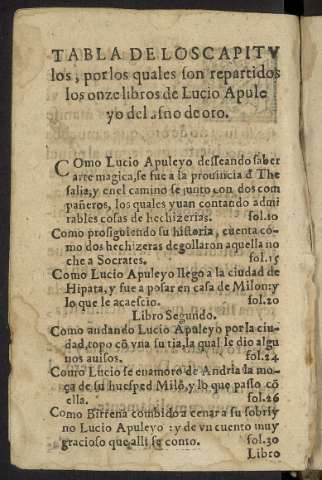 TABLA DE LOS CAPITV
los, por los quales son repartidos
los onze libros de Lucio Apule
yo del asno de oro.
COmo Lucio Apuleyo desseando saber
arte magica, se fue a la prouincia đ The
salia, y en el camino se junto con dos com
pañeros, los quales yuan contando admi
rables cosas de hechizerias. fol.10
Como prosiguiendo su historia, cuenta có-
mo dos hechizeras degollaron aquella no
che a Socrates. fol.15
Como Lucio Apuleyo llego a la ciudad de
Hipata, y fue a posar en casa de Milon: y
lo que le acaescio. fol.20
Libro Segundo.
Como andando Lucio Apuleyo por la ciu-
dad, topo cõ vna su tia, la qual le dio algu
nos auisos. fol.24
Como Lucio se enamoro de Andria la mo-
ça de su huesped Milõ, y lo que passo cõ
ella. fol.26
Como Birrena combido a cenar a su sobri
no Lucio Apuleyo: y de vn cuento muy
gracioso que alli se conto. fol.30
Libro